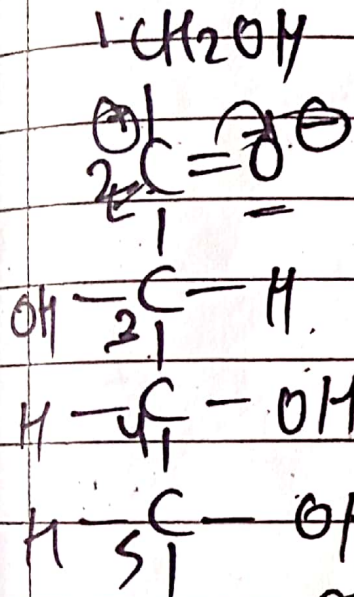 1 CH2OH
⊕ ⊖
2 C=O
OH-C-H
3
H-C-OH
4
H-C-OH
5